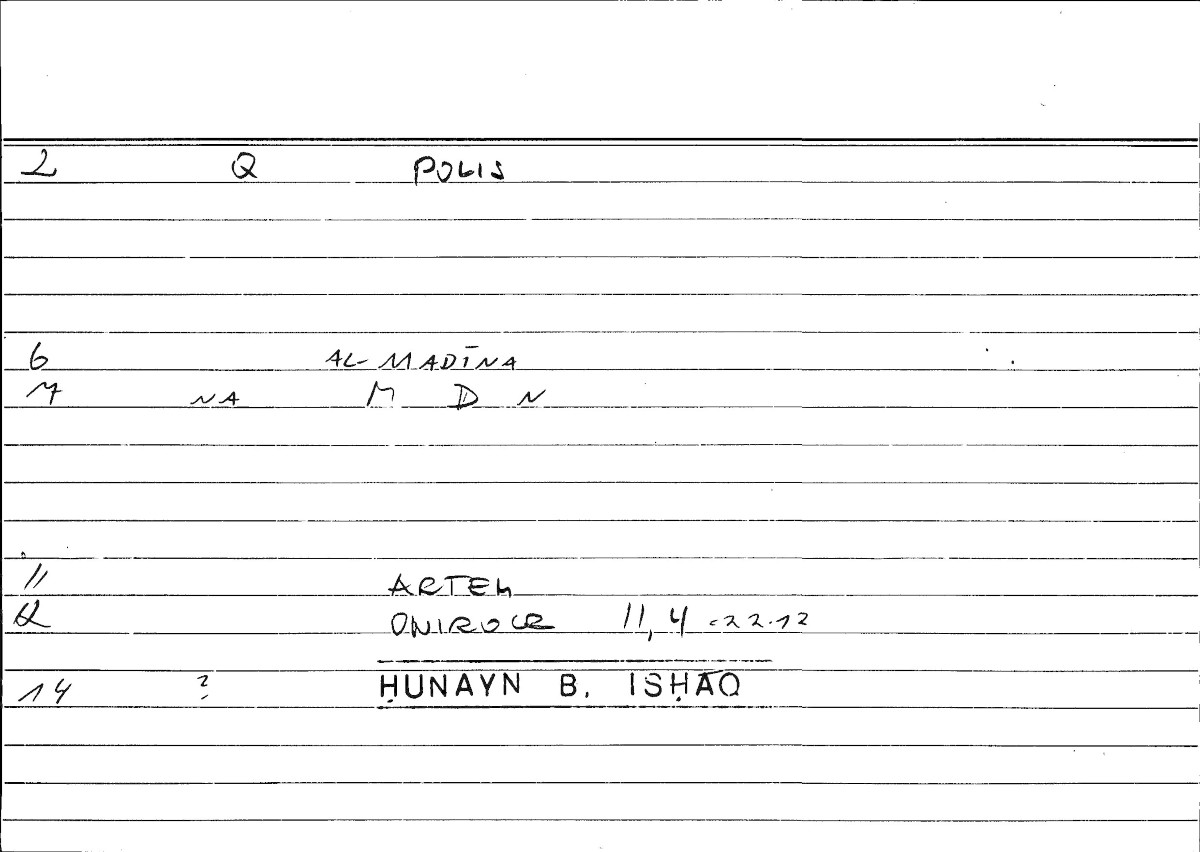 2 Q POLIS
6 AL-MADĪNA
7 NA M D N
11 ARTEM
Q ONIROCR 11,4 = 22.12
14 ? ḤUNAYN B. ISḤĀQ